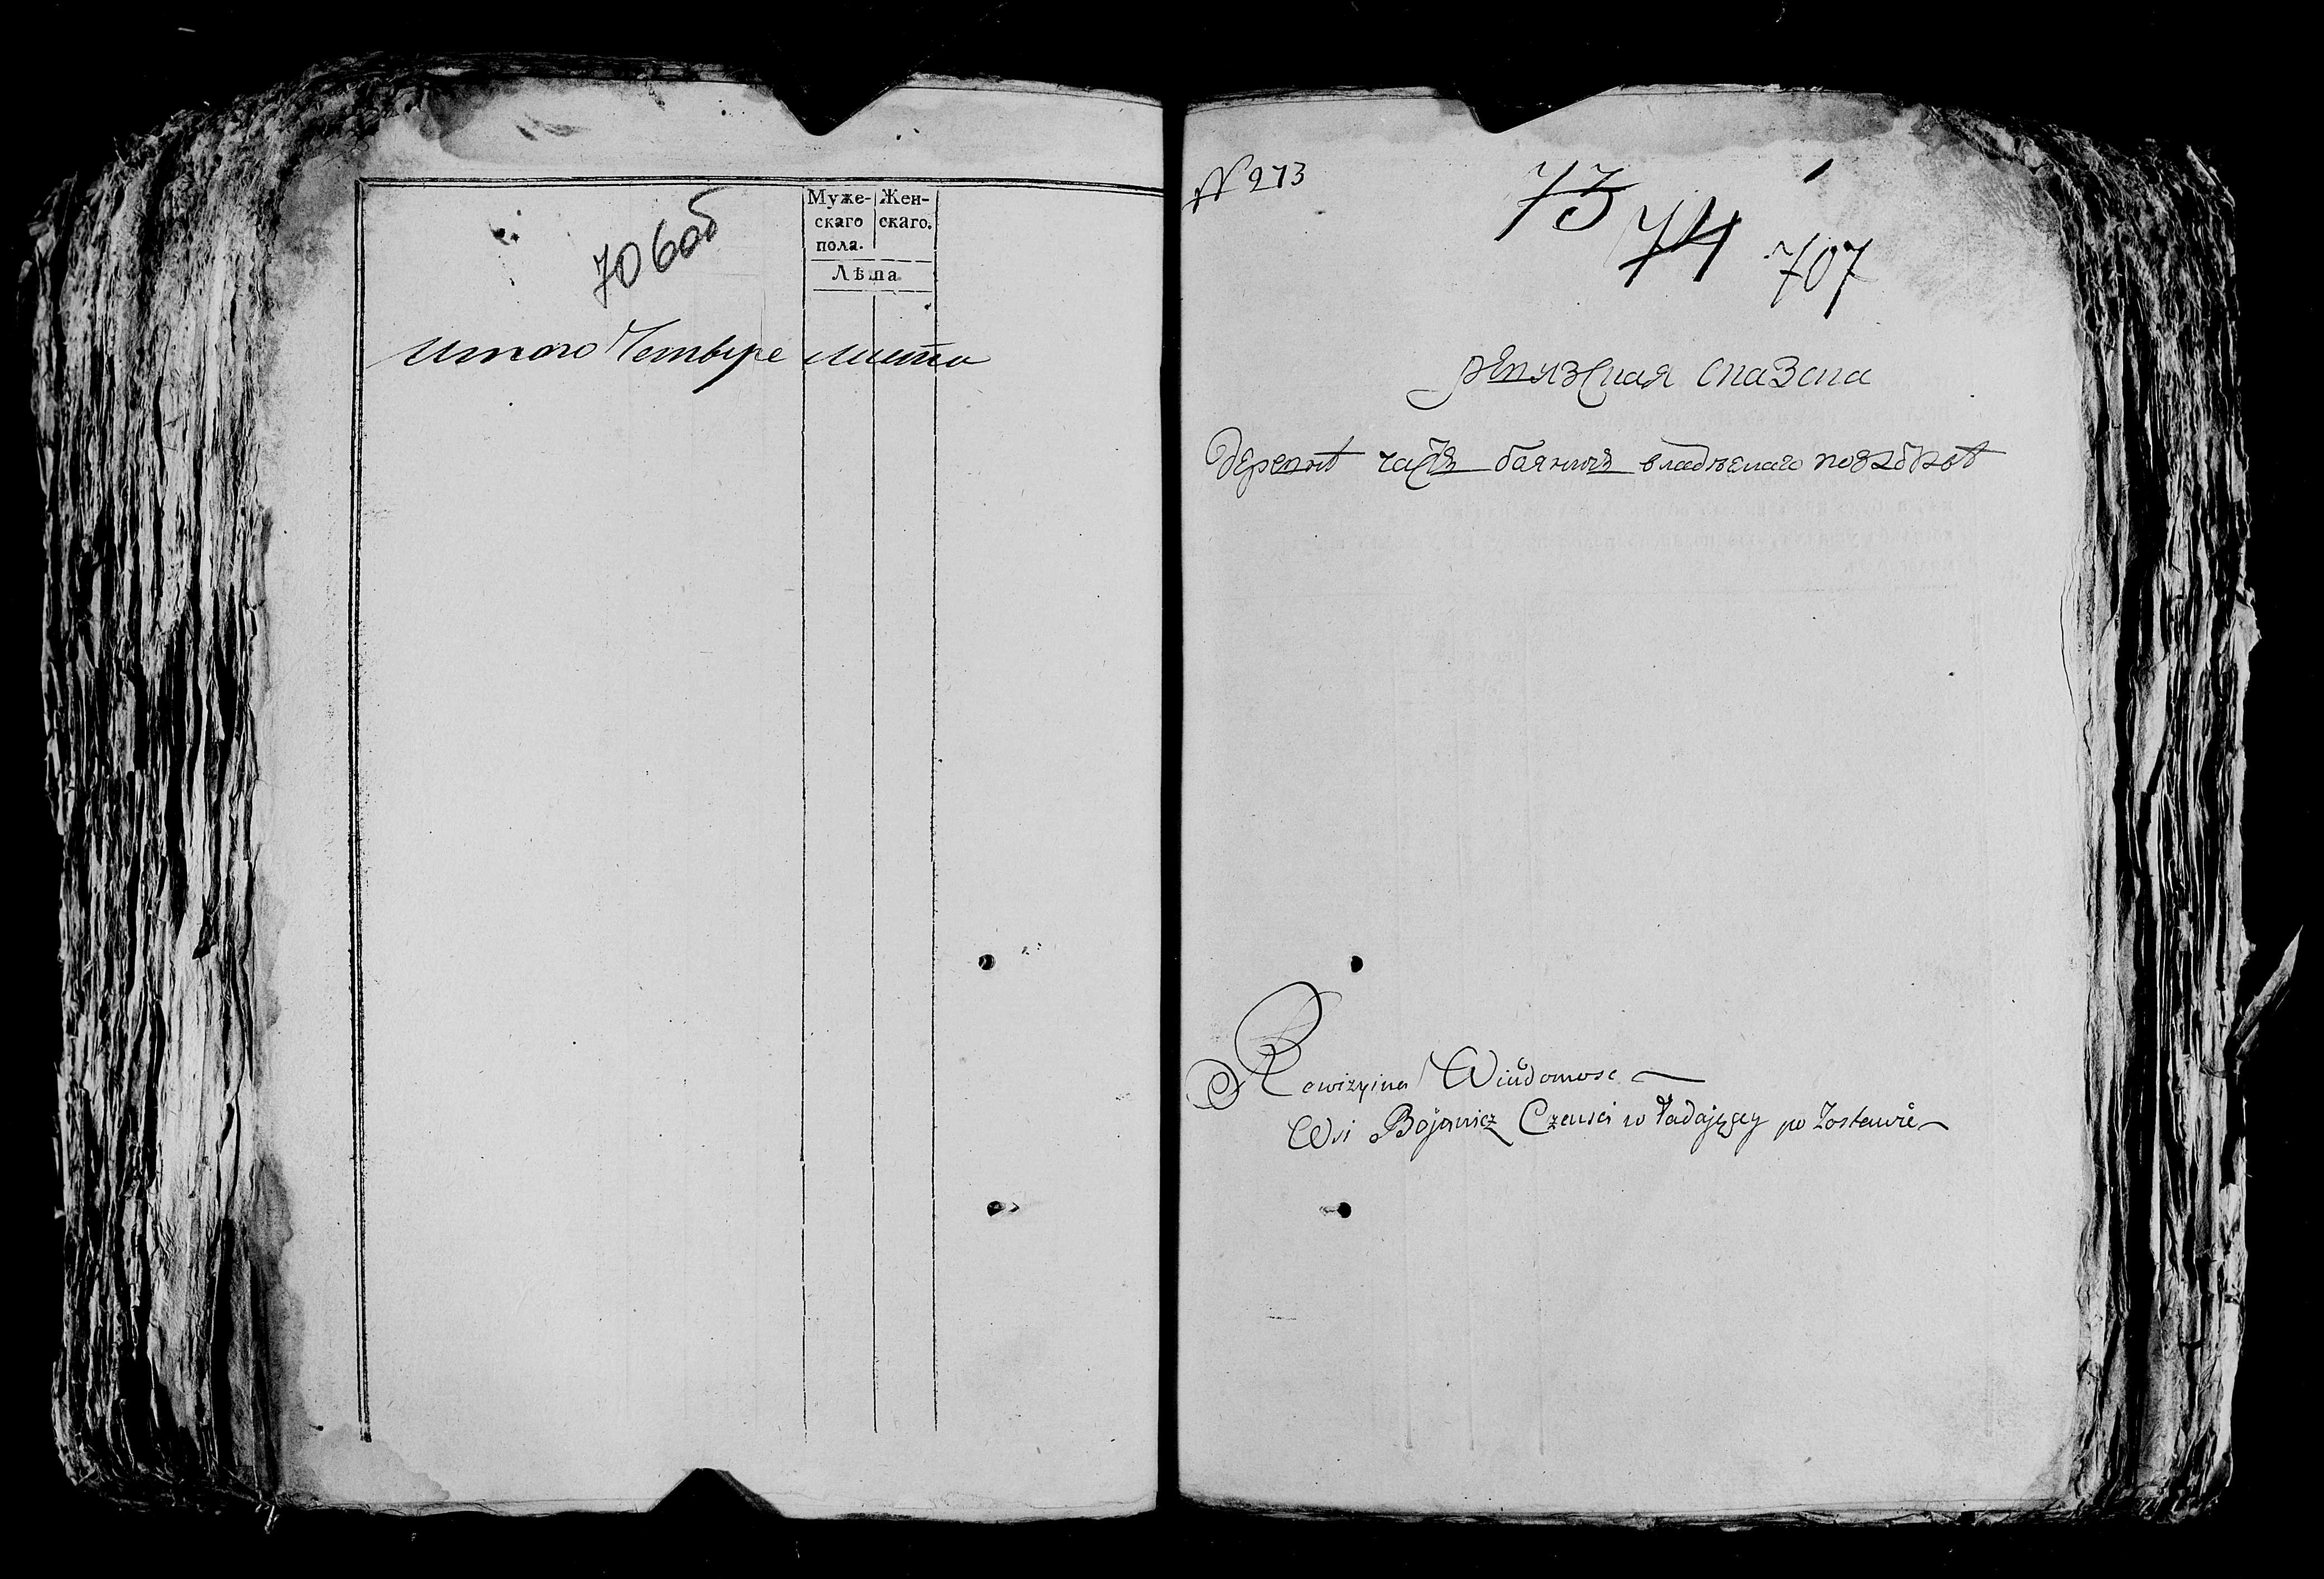 706об
Муже-
скаго
пола.
Жен-
скаго.
Лѣта
Итого Четыре листа
N 273
73
74
707
ревизская сказка
деревнѣ части боянич владѣемаго
Rewizyina Wiadomosc
Wsi Bojanicz Czensci w Tadającey po Zostawie